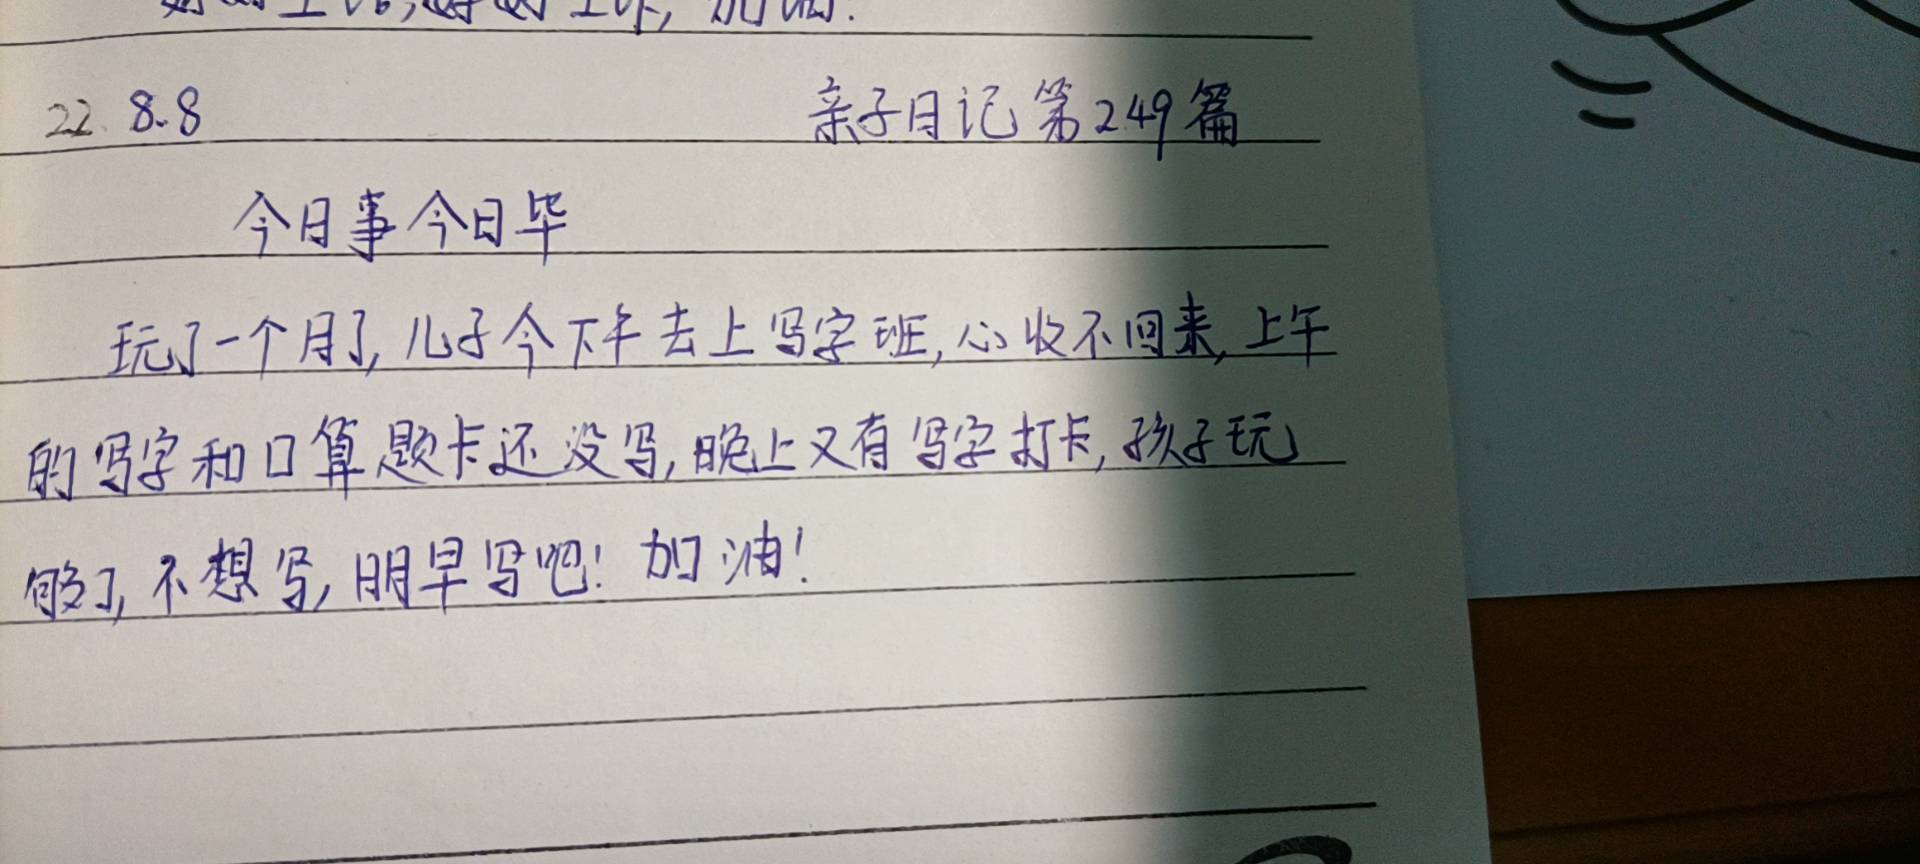 加油!
22. 8.8 亲子日记第249篇
今日事今日毕
玩了一个月了,儿子今下午去上写字班,心收不回来,上午
的写字和口算题卡还没写,晚上又有写字打卡,孩子玩
够了,不想写,明早写吧!加油!